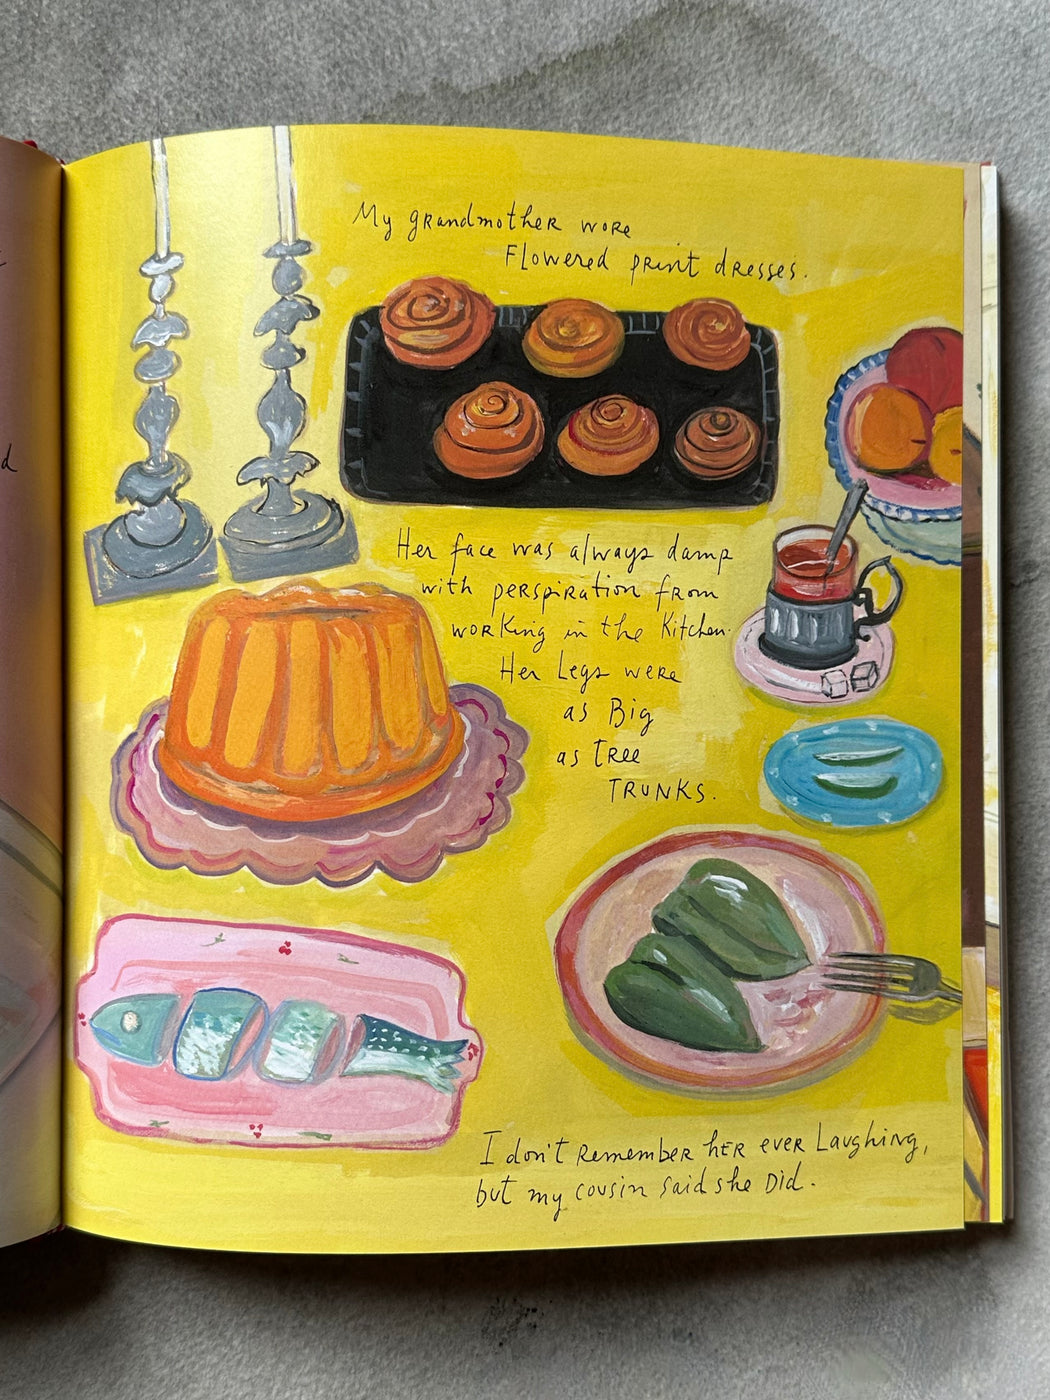 My grandmother wore
Flowered print dresses.
Her face was always damp
with perspiration from
working in the Kitchen.
Her Legs were
as Big
as TREE
TRUNKS.
I don't Remember her ever Laughing,
but my cousin said she Did.